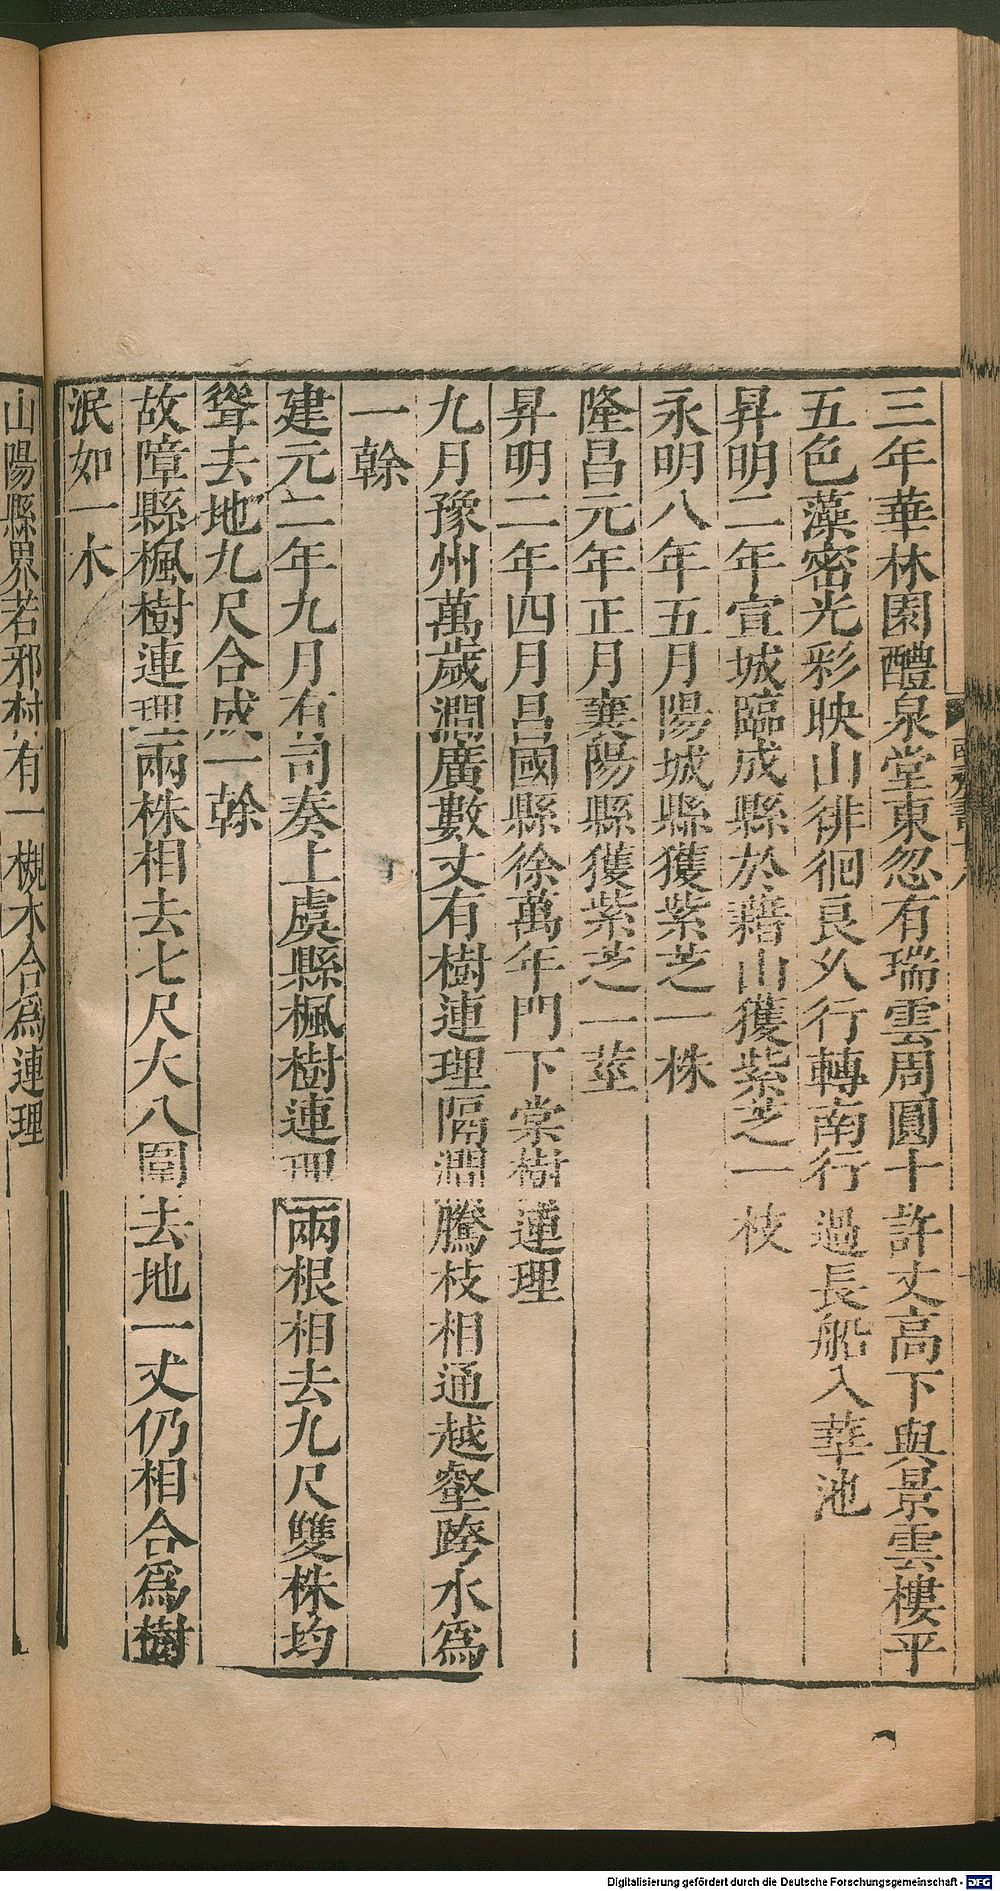 三年華林園醴泉堂東忽有瑞雲周圓十許丈高下與景雲樓平
五色藻密光彩映山徘徊良久行轉南行過長船入華池
昇明二年宣城臨成縣於藉山獲紫芝一枝
永明八年五月陽城縣獲紫芝一株
隆昌元年正月襄陽縣獲紫芝一莖
昇明二年四月昌國縣徐萬年門下棠樹連理
九月豫州萬歲澗廣數丈有樹連理隔澗騰枝相通越壑跨水爲
一榦
建元二年九月有司奏上虞縣楓樹連理兩根相去九尺雙株均
聳去地九尺合成一榦
故障縣楓樹連理兩株相去七尺大八圍去地一丈仍相合爲樹
泯如一木
山陽縣界若邪村有一槻木合爲連理
Digitalisierung gefördert durch die Deutsche Forschungsgemeinschaft - DFG